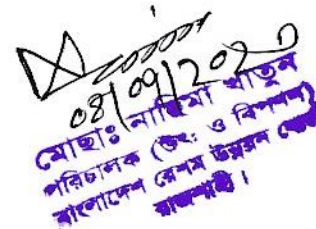 08/09/202
মোছাঃ নাছিমা খাতুন
পরিচালক (উৎঃ ও বিপণন)
বাংলাদেশ রেশম উন্নয়ন বোর্ড
রাজশাহী।